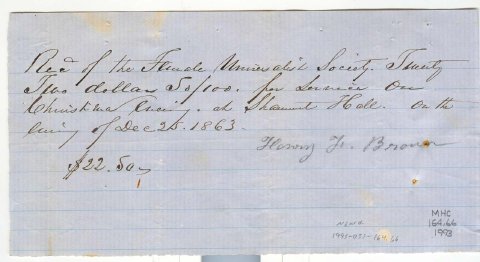 Recd of the Female Universalist Society. Twenty
Two dollars 50/100. for Service on
Christmas Evening. at Shawmut Hall. on the
Evening of Dec 25. 1863.
Henry F. Brown
$22.50
MHC
164.66
1993
1993-031-164.66